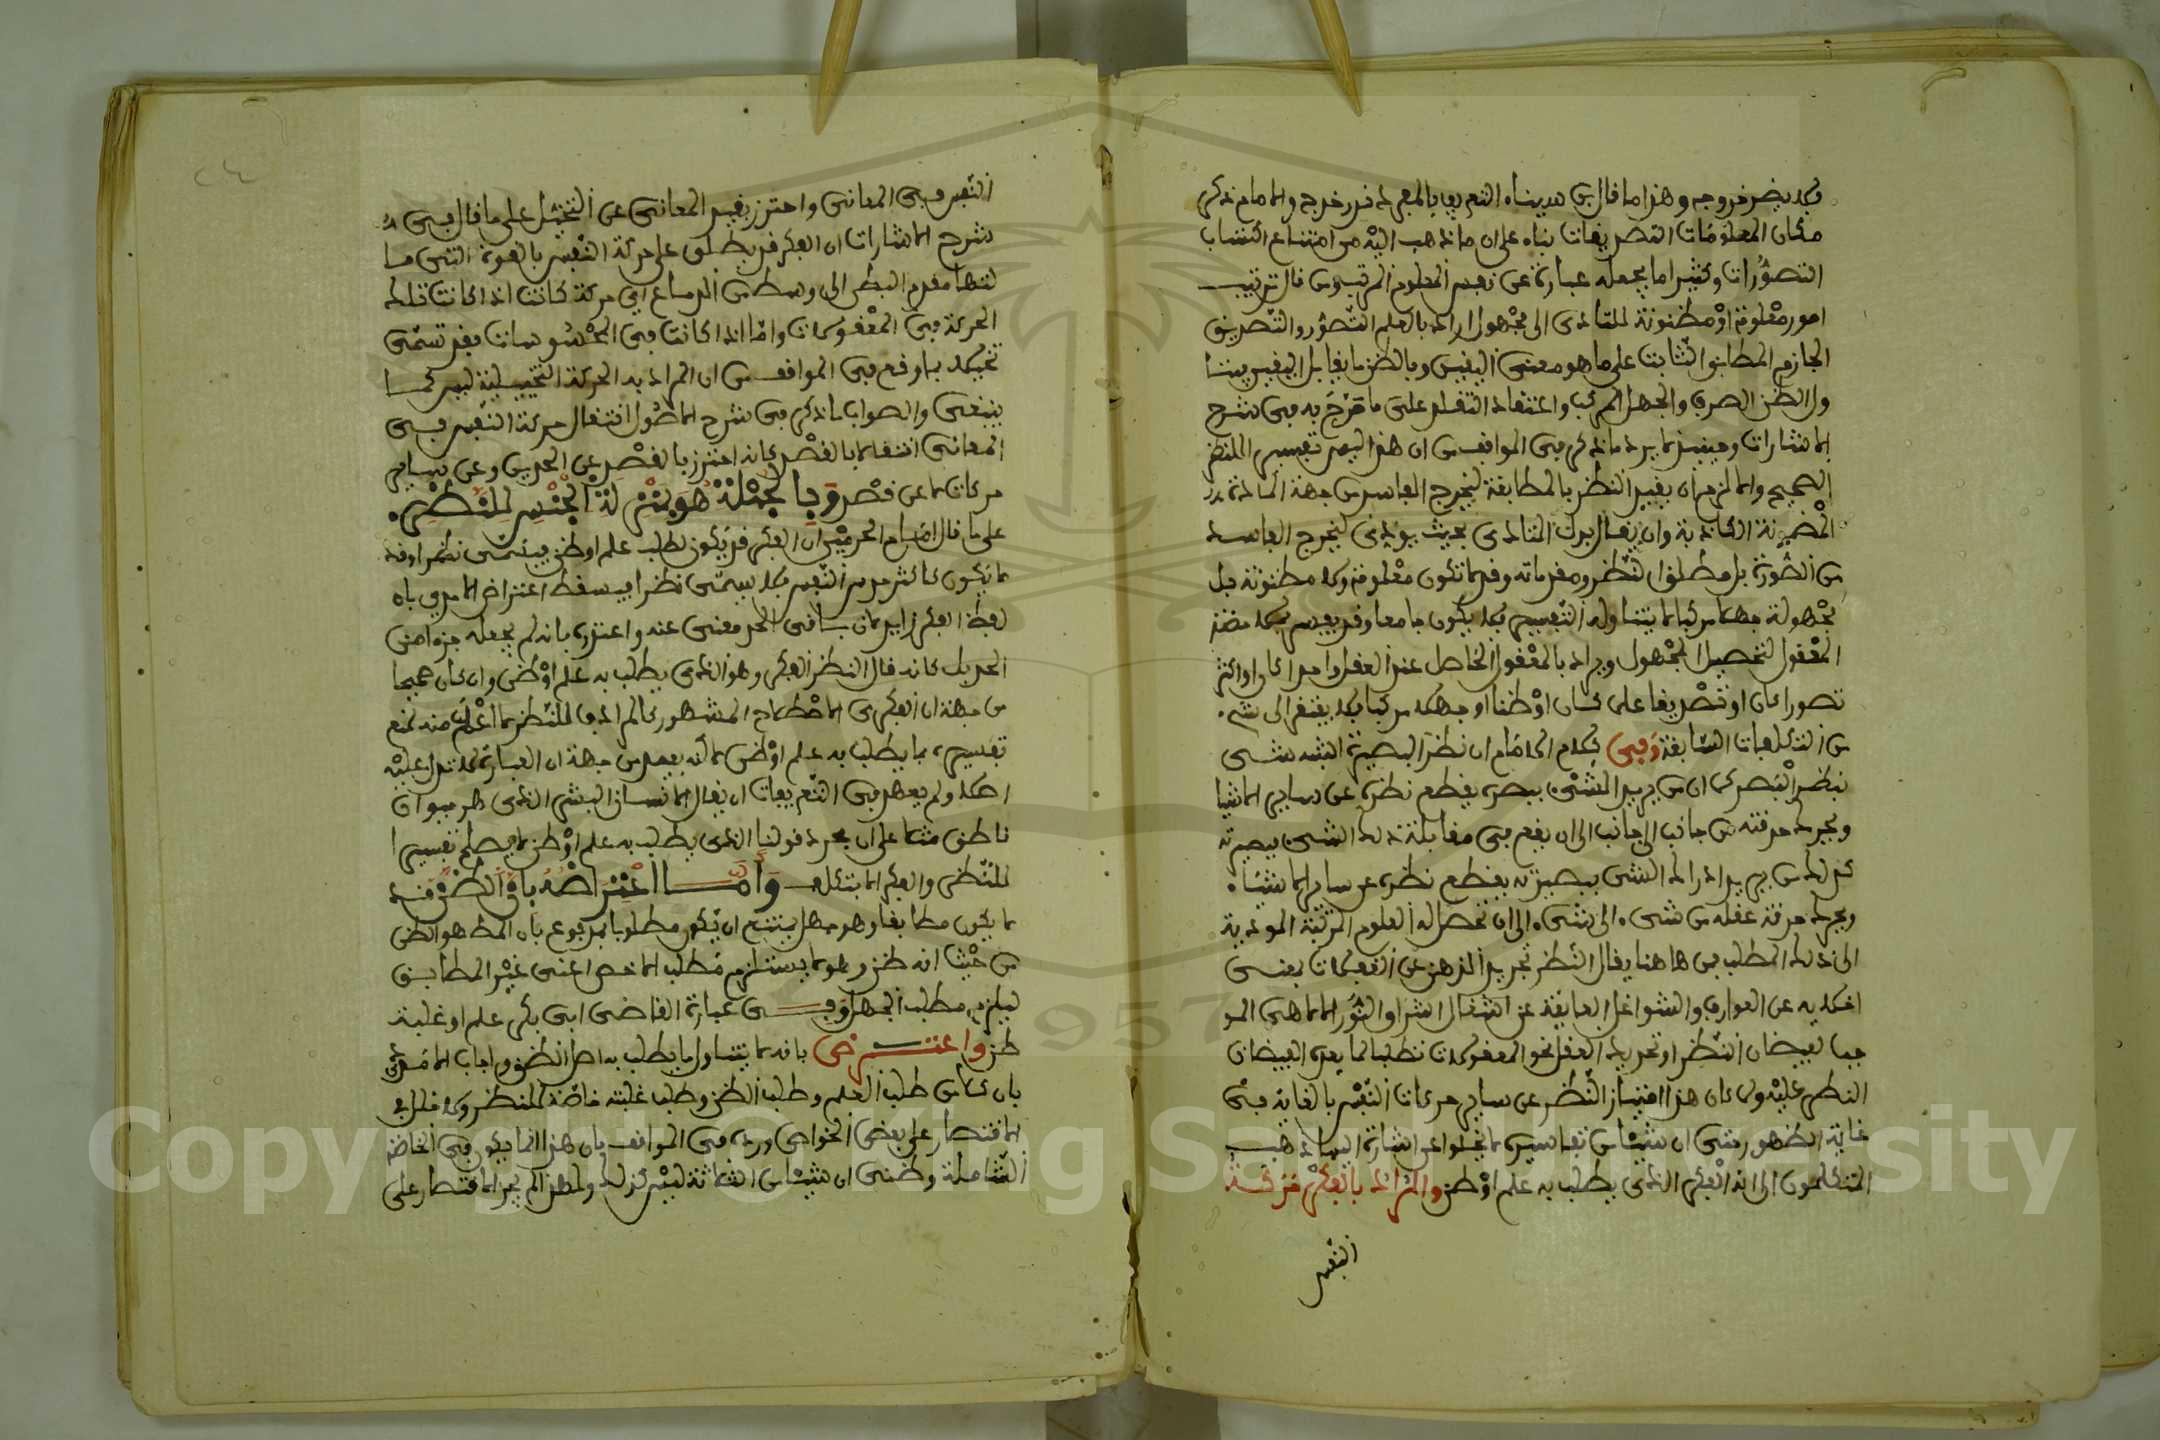 فلا يضر خروجه وهذا ما قال بن سيناء التعريف بالمفرد قد رخدج والامام ذكر
مكان المعلومات التصديقات بناء على ان ما ذهب اليه من امتناع اكتساب
التصورات وكثيرا ما يجعله عبارة عن نفس المعلوم المرتب ومن قال ترتيب
امور معلومة او مظنونة للتادى الى مجهول اراد بالعلم التصور والتصديق
الجازم المطابق الثابت على ما هو معنى اليقين وبالظن ما يقابل اليقين فيتنا
ول الظن الصرف والجهل المركب واعتقاد المقلد على ما صرح به فى شرح
الاشارات وحينئذ لا يرد ما ذكر فى المواقف من ان هذا ليس تفسير اللنظر
الصحيح والا لزم ان يقيد الظن بالمطابقة ليخرج الفاسد من جهة المادة
المظنونة الكاذبة وان يقال بدل التادى بحيث يودى ليخرج الفاسد
من الصورة بل مطلق النظر ومقدماته وقد لا تكون معلومة ولا مظنونة بل
مجهولة جهلا مركبا لا يتناوله التفسير فلا يكون جامعا وقد يفسر بملاحظة
المعقول لتحصيل المجهول ويراد بالمعقول الحاصل عند العقل واحدا كان او اكثر
تصورا كان او تصديقا علما كان او ظنا او جهلا مركبا فلا يفتقر الى شيء
من التكلفات السابقة وفى كلام الامام ان نظر البصيرة اشبه شى
بنظر البصر كما ان من يريد المشى ببصره يقطع نظره عن ساير الاشيا
ويحرك حدقته من جانب الى جانب الى ان يقع فى مقابلة ذلك الشىء فيبصره
كذلك من يريد ادراك الشى ببصيرته يقطع نظره عن ساير الاشياء
ويحرك حدقة عقله من شىء الى شىء الى ان تحصل له العلوم المرتبة المودية
الى ذلك المطلب من هاهنا يقال النظر تجريد الذهن عن الغفلات بمعنى
اخلايه عن العوارف والشواغل العايقة عن اشغال اشراق النور الالاهى المو
جب لفيضان النظر او تحريك العقل نحو المعقولات تطلبا لما يعد الفيضان
النظر عليه وكما كان هذا امتياز النظر عن ساير حركات النفس بالغاية فى
غاية الظهور حتى ان شيئا من تفاسيره لا يخلوا عن اشارة اليها ذهب
المتكلمون الى انه الفكر الذى يطلب به علم او ظن والمراد بالفكر حركة
النفس
النفس فى المعانى واحترز بقيد المعانى عن التخيل على ما قال فى
شرح الاشارات ان الفكر قد يطلق على حركة النفس بالقوة التى
لتها مقدم البطن الى وسط من الدماغ اي حركة كانت اذا كانت تلك
الحركة فى المعقولات واما اذا كانت فى المحسوسات فقد تسمى
تخيلا فما وقع فى المواقف من ان المراد به الحركة التخييلية ليس كما
ينبغى والصواب ما ذكر فى شرح الاصول انتقال حركة النفس فى
المعانى انتقالا بالقصد كانه احترز بالقصد عن الحدس وعن ساير
حركات لا عن قصد وبالجملة هو بمنزلة الجنس للنظر
على ما قال امام الحرمين ان الفكر قد يكون لطلب علم او ظن فيسمى نظرا وقد
لا يكون كاكثر حديث النفس فلا يسمى نظرا فيسقط اعتراض الامدى بان
لفظ الفكر زايد لان باقى الحد مغنى عنه واعتذاره بانه لم يجعله جزءا من
الحد بل كانه قال النظر الفكر وهو الذى يطلب به علم او ظن وان كان صحيحا
من جهة ان الفكر فى الاصطلاح المشهور كالمرادف للنظر لا اعم منه لكن
تفسيره بما يطلب به علم او ظن لانه بعيد من جهة ان العبارة لا تدل عليه
اصلا ولم يعهد فى التعريفات ان يقال الانسان البشر الذى هو حيوان
ناطق مثلا على ان مجرد قولنا الذى يطلب به علم او ظن لا يصلح تفسيرا
للنظر والفكر الا بتكلف واما اعتراضه بان الظن قد
لا يكون مطابقا وهو جهل يمتنع ان يكون مطلوبا فمدفوع بان المطلوب هو الظن
من حيث انه ظن وهو لا يستلزم مطلب الاخص اعنى غير المطابق
ليلزم مطلب الجهل وفى عبارة القاضى ابى بكر علم او غلبة
ظن واعترض بانه لا يتناول ما يطلب به اصل الظن واجاب الامدى
بان كلا من طلب العلم وطلب الظن وطلب غلبته خاصة للنظر ولا خلل فى
الاقتصار على بعض الخواص ورده فى المواقف بان هذا انما يكون فى الخاصة
الشاملة وظنى ان شيئا من الثلاثة ليس كذلك ولهذا لم يجز الاقتصار على